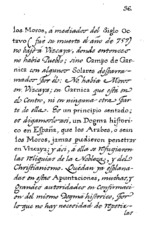 36.
los Moros, á mediador del Siglo Oc-
tavo (fue su muerte el año de 757)
no bajó á Vizcaya, donde entonces
no había Pueblo; sino Campo de Garnica
con algunos Solares desparra-
mados. Por ds. No había Moros
en Vizcaya; en Garnica que es
el Centro, ni en ninguna otra Par-
te de ella. Es un principio sentado;
y digamoslo así, un Dogma histori-
co en España, que los Arabes, o sean
los Moros, jamas pudieron penetrar
en Vizcaya; y así, á ella se refugiaron
las Reliquias de la Nobleza, y del
Christianismo. Quedan ya expuestas
en estos Apuntaciones, muchas, y
Grandes autoridades en Confirmaci-
on del mismo Dogma historico, Por
lo que no hay necesidad de repetir-
las